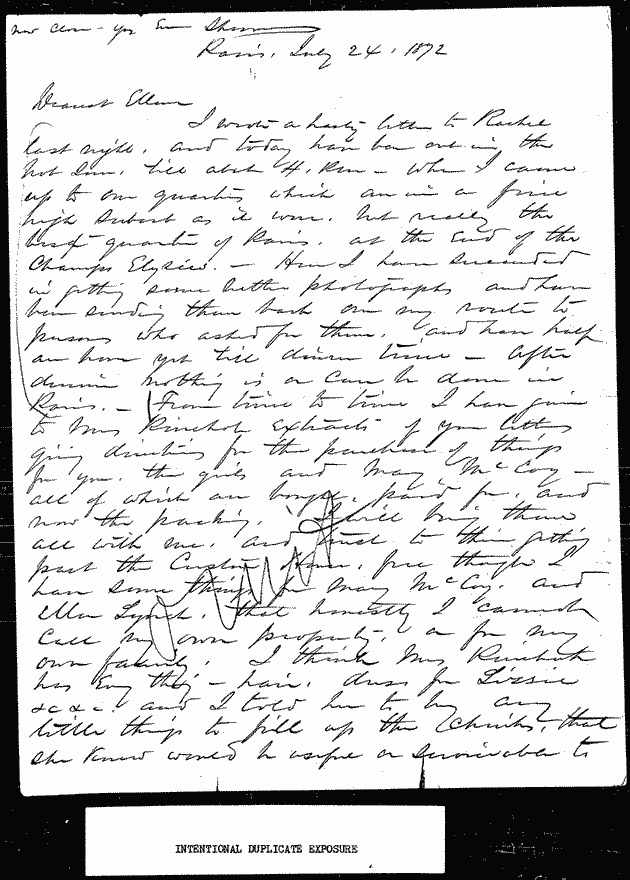 Paris, July 24, 1872
Dearest Ellen
I wrote a hasty letter to Rachel
last night, and today have been out in the
hot Sun, till about 4. P.M - when I came
up to our quarters which are in a fine
high suburb as it were, but really the
best quarter of Paris, at the End of the
Champs Elysees. - Here I have succeeded
in getting some better photographs and have
been sending them back on my route to
persons who asked for them, and have half
an hour yet till dinner time - After
dinner nothing is or can be done in
Paris. - From time to time I have given
to Mrs Rinehart Extracts of your letters
giving directions for the purchase of things
for you, the girls and Mary McCoy -
all of which are bought, paid for, and
now the packing. I will bring them
all with me, and trust to their getting
past the Custom House, free though I
have some things for Mary McCoy, and
Ella Lynch, that honestly I cannot
Call my own property, or for my
own family. I think Mrs Rinehart
has Every thing - hair, dress for Lizzie
&c &c. and I told her to buy any
little things to fill up the Chinks, that
she knew would be useful or serviceable to
INTENTIONAL DUPLICATE EXPOSURE